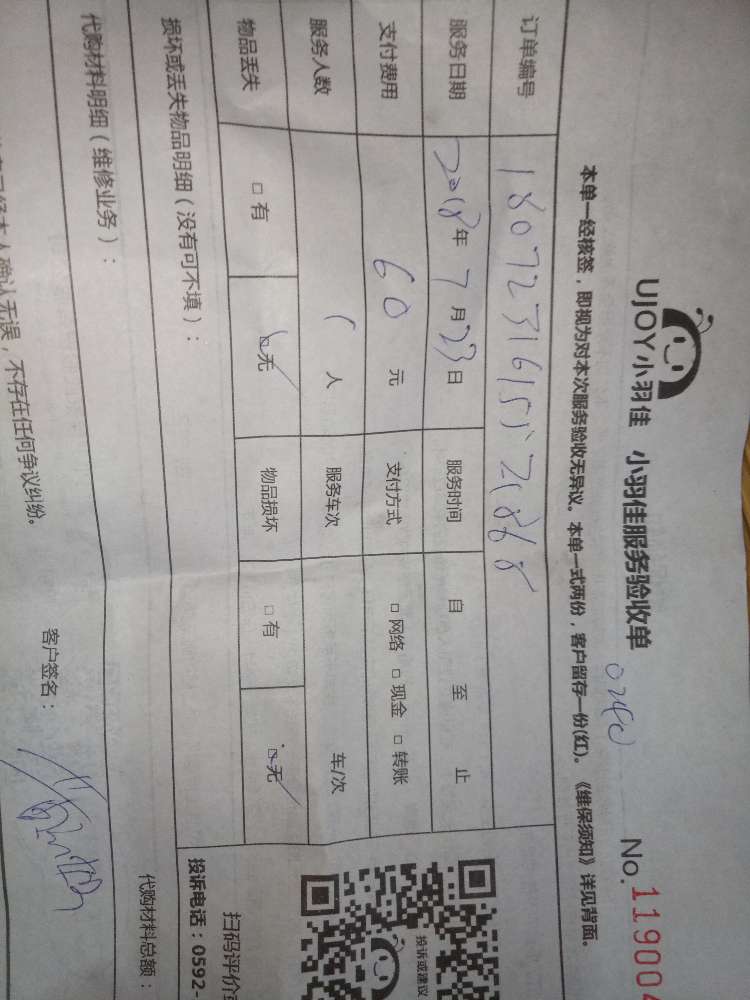 UJOY小羽佳 小羽佳服务验收单 No.119004
0240
本单一经核签，即视为对本次服务验收无异议。本单一式两份，客户留存一份(红)。《维保须知》详见背面。
订单编号
服务日期 2018年7月23日 服务时间 自 至 止
支付费用 60元 支付方式 □网络 □现金 □转账
服务人数 1人 服务车次 车/次
物品丢失 □有 □无 物品损坏 □有 □无
损坏或丢失物品明细（没有可不填）：
投诉或建议
扫码评价
投诉电话：0592-
代购材料明细（维修业务）： 代购材料总额：
确认无误，不存在任何争议纠纷。 客户签名：